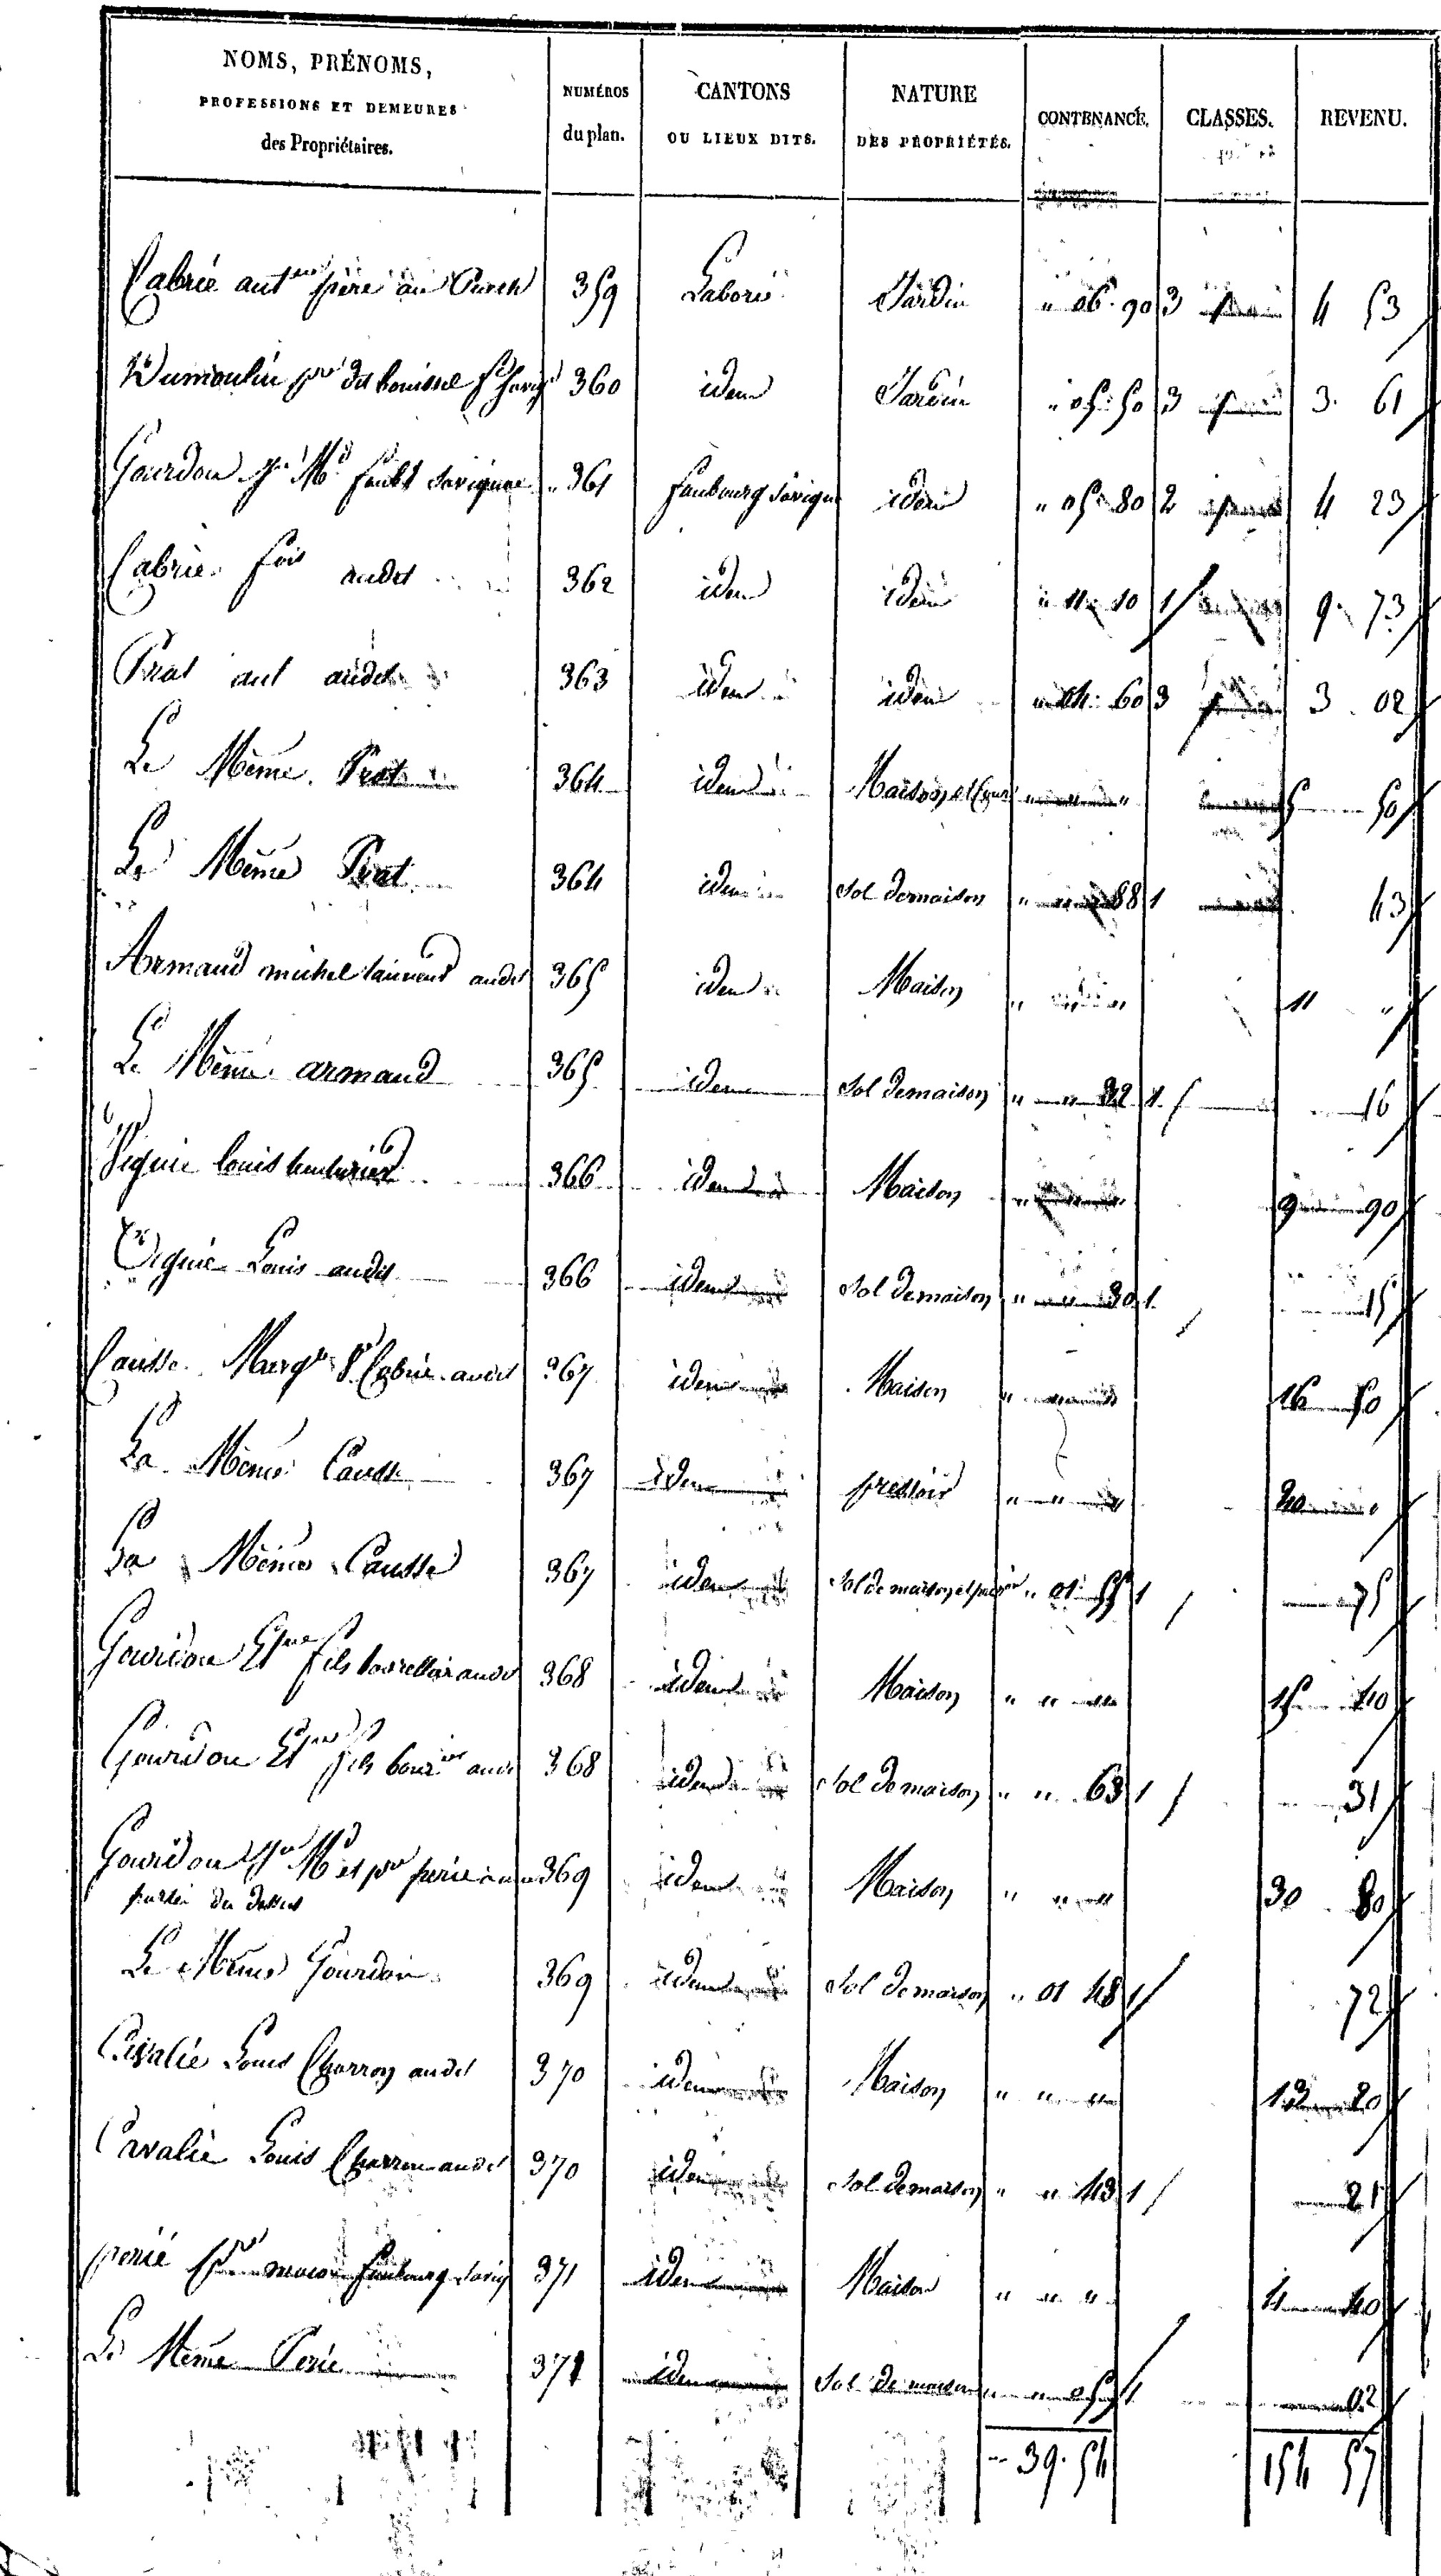 NOMS, PRÉNOMS,
PROFESSIONS ET DEMEURES
des Propriétaires.
NUMÉROS
du plan.
CANTONS
OU LIEUX DITS.
NATURE
DES PROPRIÉTÉS.
CONTENANCE.
CLASSES.
REVENU.
Cabrié ant père au 359 Laborie Jardin " 06 90 3 4 53
Dumoulin dit 360 idem Jardin " 05 50 3 3 61
Gourdon Md faubg Savignac 361 faubourg Savignac idem " 05 80 2 4 23
Cabrié fois audit 362 idem idem " 11 10 1 9 73
Prat ant audit 363 idem idem " 04 60 3 3 02
Le Même Prat 364 idem Maison et Cour " " " 5 50
Le Même Prat 364 idem Sol de maison " " 88 1 43
Armand michel audit 365 idem Maison " " " 11 "
Le Même armand 365 idem Sol de maison " " 32 1 16
Viguié louis 366 idem Maison " " " 9 90
Viguié Louis audit 366 idem Sol de maison " " 30 1 15
Causse Margte Cabrié audit 367 idem Maison " " " 16 50
La Même Causse 367 idem pressoir " " " 20 "
La Même Causse 367 idem Sol de maison et " 01 55 1 75
Gourdon Etne fils audit 368 idem Maison " " " 15 40
Gourdon Etne fils audit 368 idem Sol de maison " " 63 1 31
Gourdon Md et 369 idem Maison " " " 30 80
partie du dessus
Le Même Gourdon 369 idem Sol de maison " 01 48 1 72
Cavalié Louis Charron audit 370 idem Maison " " " 13 20
Cavalié Louis Charron audit 370 idem Sol de maison " " 43 1 21
Perié maçon faubourg Savig 371 idem Maison " " " 4 40
Le Même Perié 371 idem Sol de maison " " 05 1 02
" 39 54 154 57